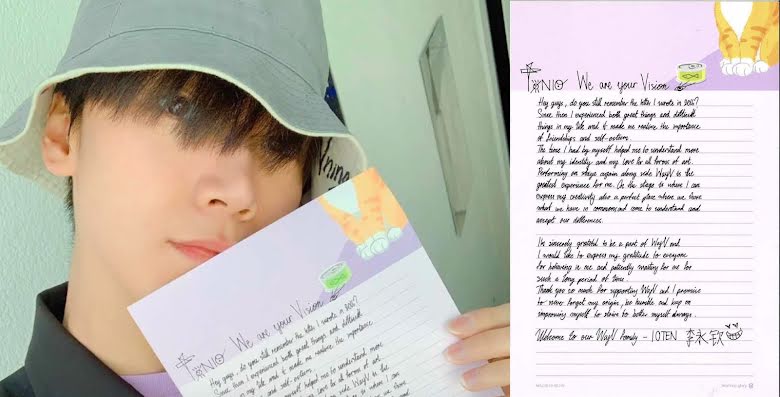 NIO We are your Vision
Hey guys, do you still remember the letter I wrote in 2016?
Since then I experienced both great things and difficult
things in my life and it made me realize the importance
of friendships and self-esteem.
The time I had by myself helped me to understand more
about my identity and my love for all forms of art.
Performing on stage
NIO We are your Vision
Hey guys, do you still remember the letter I wrote in 2016?
Since then I experienced both great things and difficult
things in my life and it made me realize the importance
of friendships and self-esteem.
The time I had by myself helped me to understand more
about my identity and my love for all forms of art.
Performing on stage again along side WayV is the
greatest experience for me. On the stage is where I can
express my creativity also a perfect place where we share
what we have in common and come to understand and
accept our differences.
I'm sincerely grateful to be a part of WayV and
I would like to express my gratitude to everyone
for believing in me and patiently waiting for me for
such a long period of time.
Thank you so much for supporting WayV and I promise
to never forget my origin, be humble and keep on
improving myself to strive to better myself always.
Welcome to our WayV family - 10 TEN 李永钦